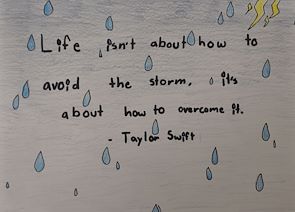 Life isn't about how to
avoid the storm, it's
about how to overcome it.
- Taylor Swift